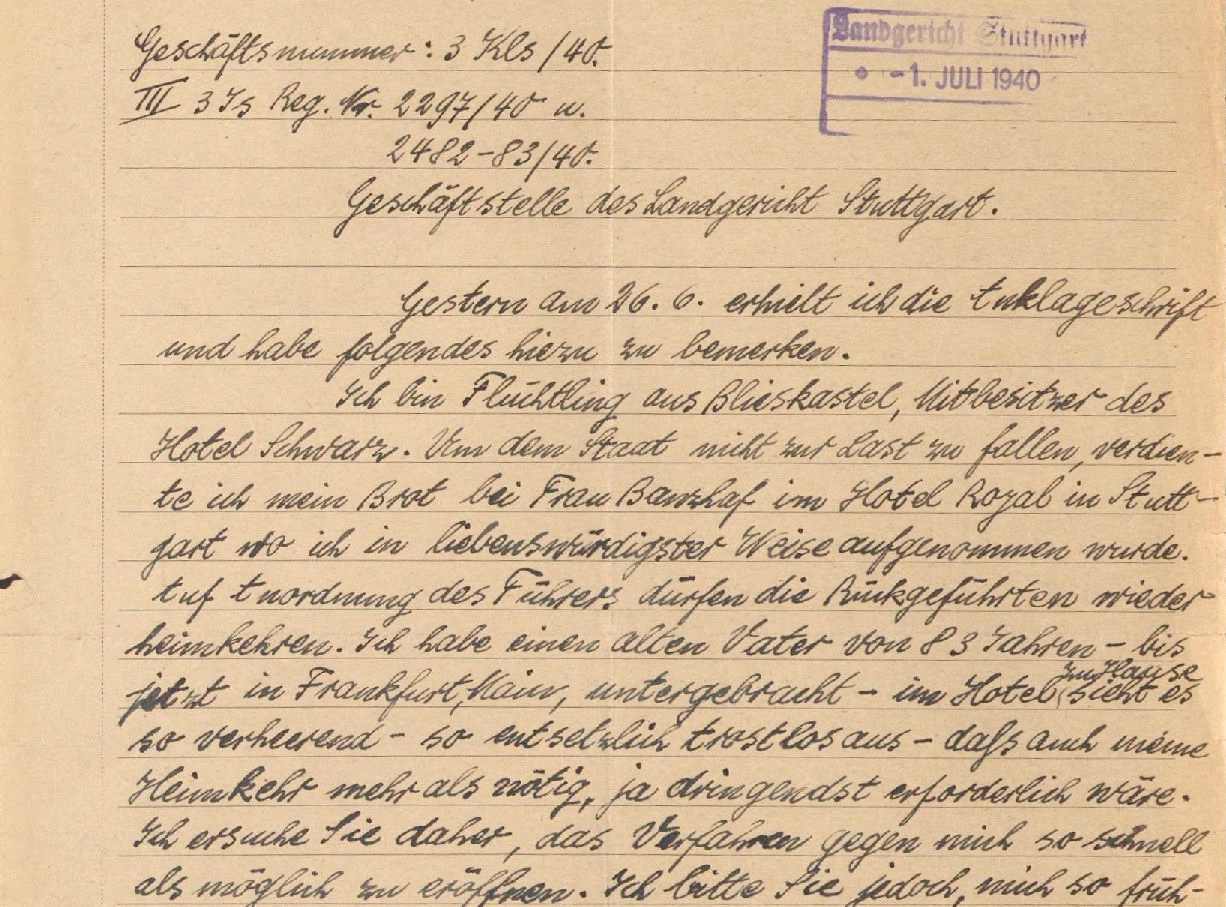 Geschäftsnummer: 3 Kls/40.
Landgericht Stuttgart
-1. JULI 1940
III 3 Js Reg. Nr. 2297/40 u.
2482-83/40.
Geschäftstelle des Landgericht Stuttgart.
Gestern am 26. 6. erhielt ich die Anklageschrift
und habe folgendes hiezu zu bemerken.
Ich bin Flüchtling aus Blieskastel, Mitbesitzer des
Hotel Schwarz. Um dem Staat nicht zur Last zu fallen, verdien-
te ich mein Brot bei Frau Banzhaf im Hotel Royal in Stutt-
gart wo ich in liebenswürdigster Weise aufgenommen wurde.
Auf Anordnung des Führers dürfen die Rückgeführten wieder
heimkehren. Ich habe einen alten Vater von 83 Jahren - bis
jetzt in Frankfurt, Main, untergebracht - im Hotel zu Hause sieht es
so verheerend - so entsetzlich trostlos aus - daß auch meine
Heimkehr mehr als nötig, ja dringendst erforderlich wäre.
Ich ersuche Sie daher, das Verfahren gegen mich so schnell
als möglich zu eröffnen. Ich bitte Sie jedoch, mich so früh-